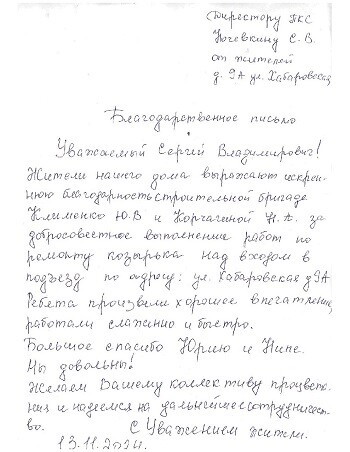 Директору ПКС
Ночевкину С.В.
от жителей
д. 9А ул. Хабаровская
Благодарственное письмо
Уважаемый Сергей Владимирович!
Жители нашего дома выражают искрен-
нюю благодарность строительной бригаде
Клименко Ю.В и Корчагиной Н.А. за
добросовестное выполнение работ по
ремонту козырька над входом в
подъезд по адресу: ул. Хабаровская д 9А
Ребята произвели хорошее впечатление,
работали слаженно и быстро.
Большое спасибо Юрию и Нине.
Мы довольны!
Желаем Вашему коллективу процвета-
ния и надеемся на дальнейшее сотрудничест-
во.
С Уважением жители.
13.11.2024